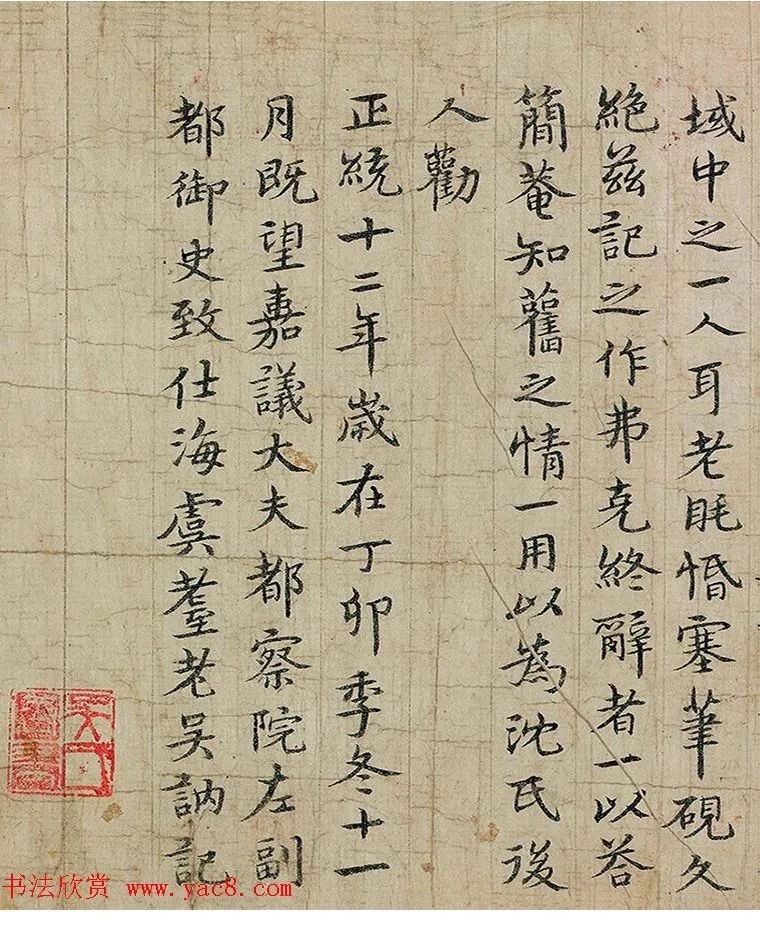 域中之一人耳老眊惛塞筆硯久
絶兹記之作弗克終辭者一以荅
簡菴知舊之情一用以為沈氏後
人勸
正統十二年歲在丁卯季冬十一
月既望嘉議大夫都察院左副
都御史致仕海虞耋老吴訥記
书法欣赏 www.yac8.com